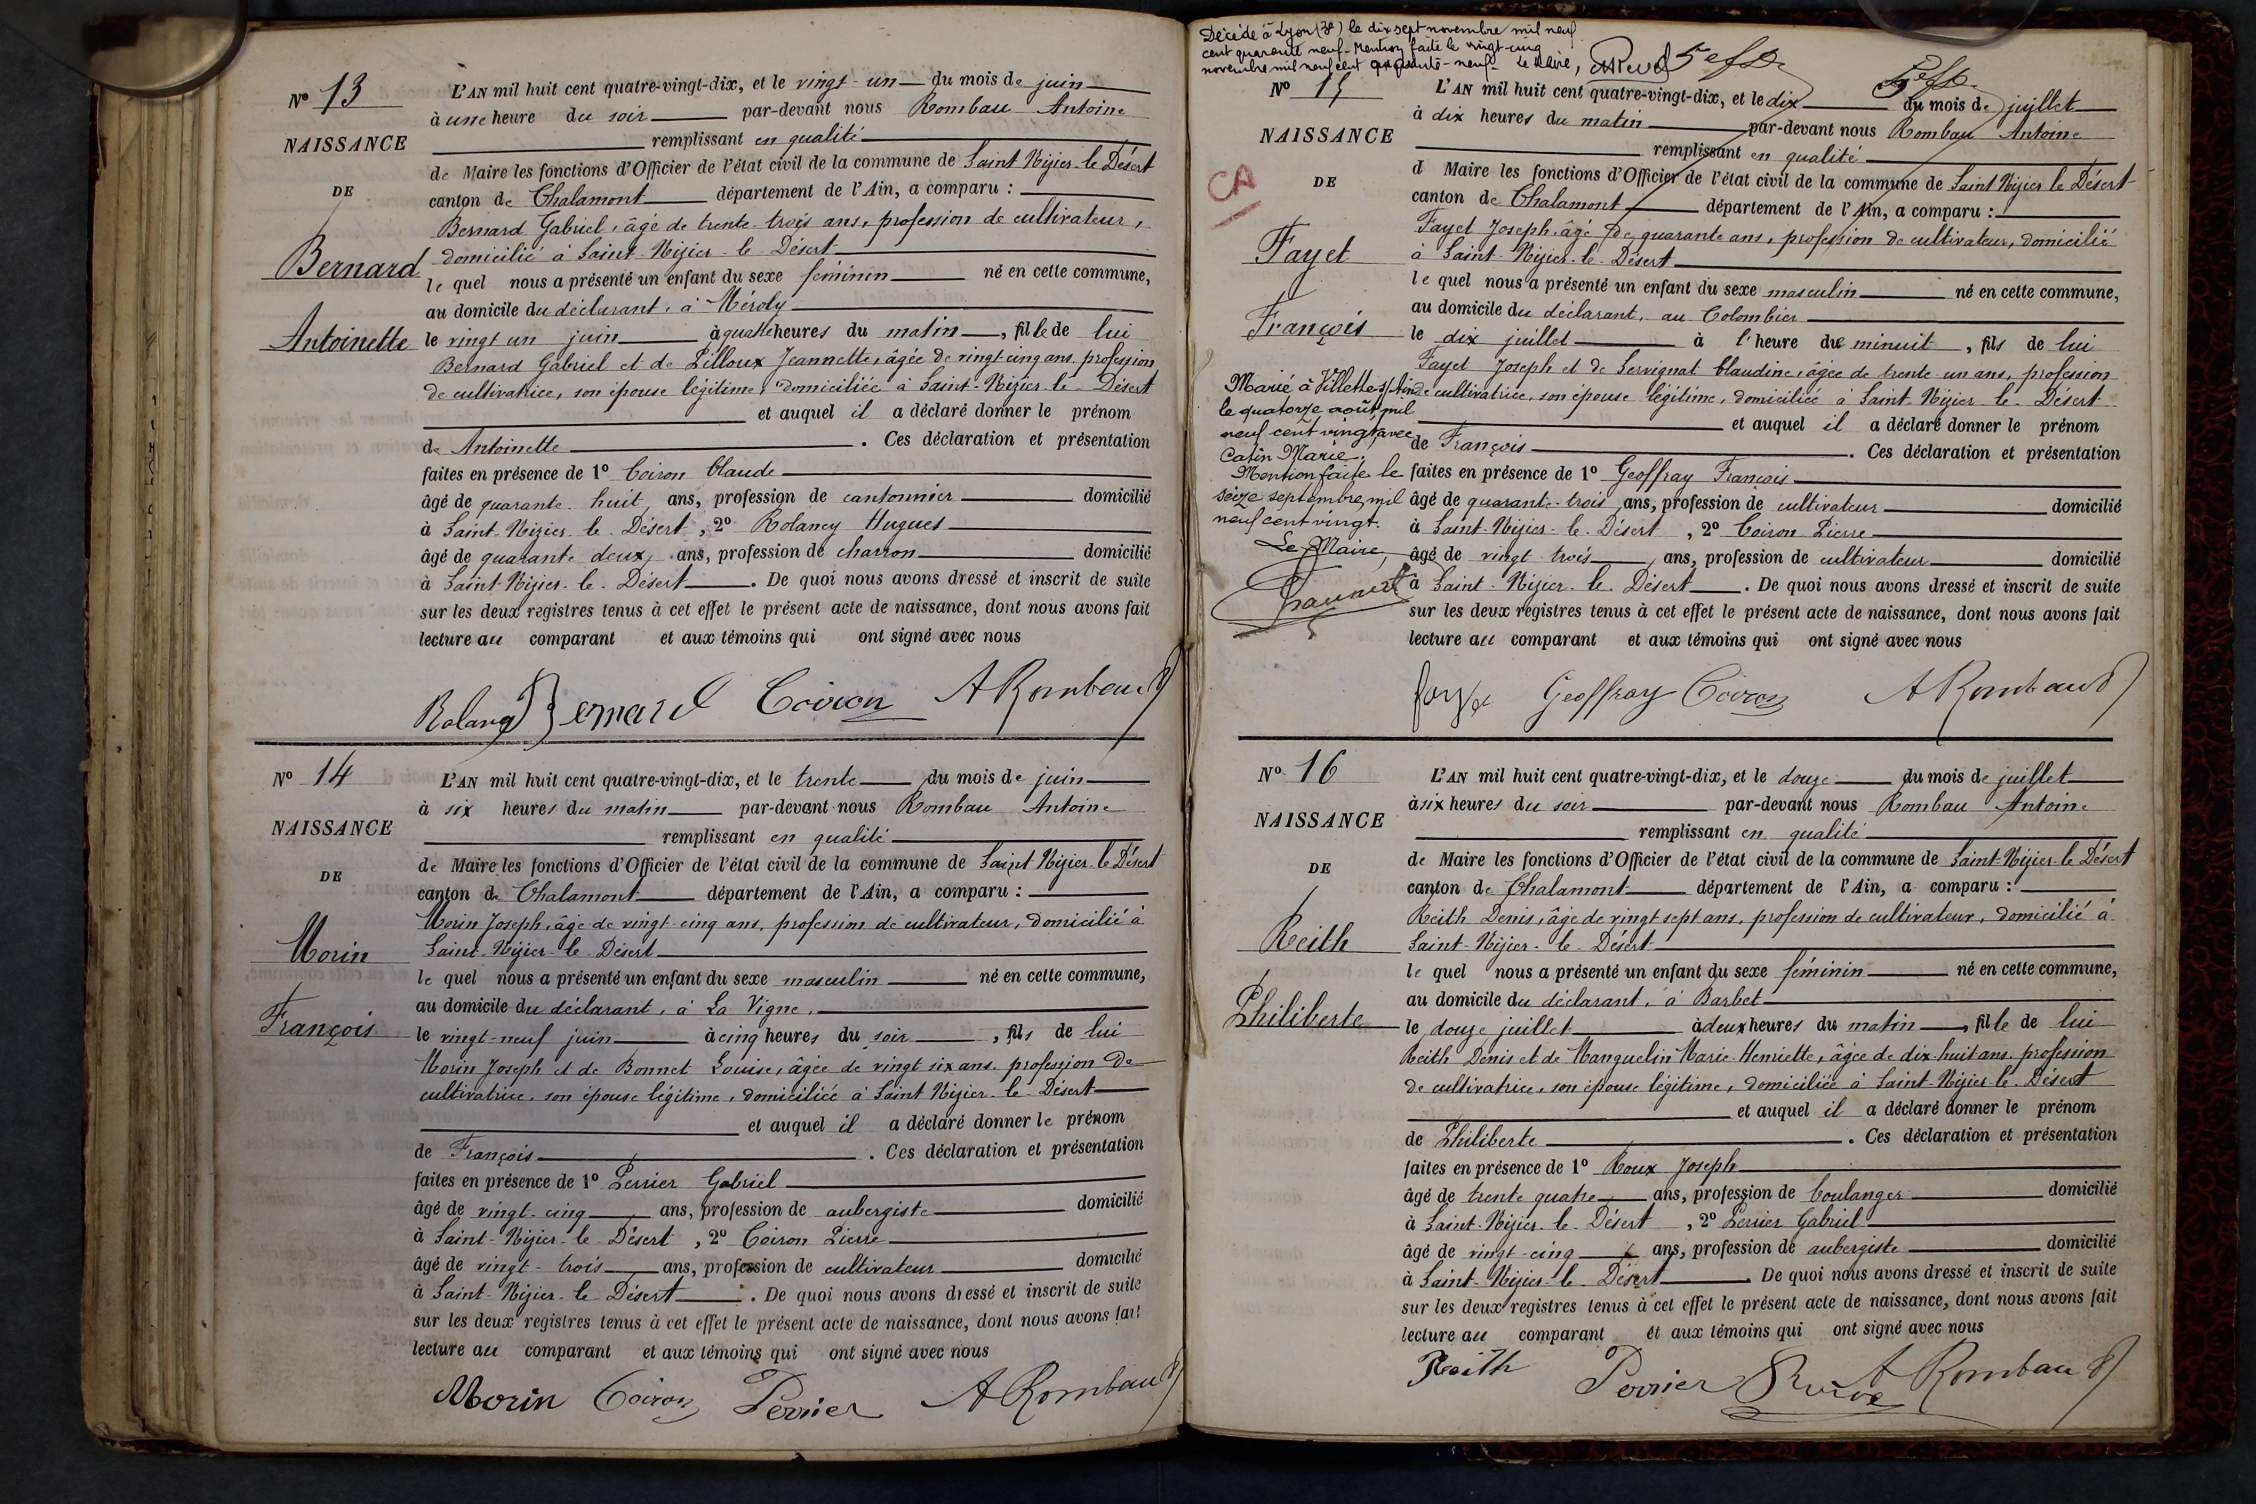 Nº 13
NAISSANCE
DE
Bernard
Antoinette
L'AN mil huit cent quatre-vingt-dix, et le vingt-un du mois de juin
à une heure du soir par-devant nous Rombau Antoine
remplissant en qualité
de Maire les fonctions d'Officier de l'état civil de la commune de Saint Nizier le Désert
canton de Chalamont département de l'Ain, a comparu :
Bernard Gabriel, âgé de trente trois ans, profession de cultivateur,
domicilié à Saint-Nizier-le-Désert
le quel nous a présenté un enfant du sexe féminin né en cette commune,
au domicile du déclarant, à
le vingt un juin à quatre heures du matin, fille de lui
Bernard Gabriel et de Pilloux Jeannette, âgée de vingt cinq ans, profession
de cultivatrice, son épouse légitime, domiciliée à Saint-Nizier-le-Désert
et auquel il a déclaré donner le prénom
de Antoinette. Ces déclaration et présentation
faites en présence de 1º Coiron Claude
âgé de quarante huit ans, profession de cantonnier domicilié
à Saint-Nizier-le-Désert, 2º Rolancy Hugues
âgé de quarante deux ans, profession de charron domicilié
à Saint-Nizier-le-Désert. De quoi nous avons dressé et inscrit de suite
sur les deux registres tenus à cet effet le présent acte de naissance, dont nous avons fait
lecture au comparant et aux témoins qui ont signé avec nous
Bernard Coiron A Rombaud
Nº 14
NAISSANCE
DE
Morin
François
L'AN mil huit cent quatre-vingt-dix, et le trente du mois de juin
à six heures du matin par-devant nous Rombau Antoine
remplissant en qualité
de Maire les fonctions d'Officier de l'état civil de la commune de Saint Nizier le Désert
canton de Chalamont département de l'Ain, a comparu :
Morin Joseph, âgé de vingt-cinq ans, profession de cultivateur, domicilié à
Saint-Nizier-le-Désert
le quel nous a présenté un enfant du sexe masculin né en cette commune,
au domicile du déclarant, à La Vigne,
le vingt-neuf juin à cinq heures du soir, fils de lui
Morin Joseph et de Bonnet Louise, âgée de vingt six ans, profession de
cultivatrice, son épouse légitime, domiciliée à Saint Nizier-le-Désert
et auquel il a déclaré donner le prénom
de François. Ces déclaration et présentation
faites en présence de 1º Perrier Gabriel
âgé de vingt-cinq ans, profession de aubergiste domicilié
à Saint-Nizier-le-Désert, 2º Coiron Pierre
âgé de vingt-trois ans, profession de cultivateur domicilié
à Saint-Nizier-le-Désert. De quoi nous avons dressé et inscrit de suite
sur les deux registres tenus à cet effet le présent acte de naissance, dont nous avons fait
lecture au comparant et aux témoins qui ont signé avec nous
Morin Coiron Perrier A Rombaud
Décédé à Lyon (3e) le dix sept novembre mil neuf
cent quarante neuf. Mention faite le vingt-cinq
novembre mil neuf cent quarante-neuf. Le Maire,
Nº 15
NAISSANCE
CA
DE
Fayet
François
Marié à Villette s/Ain
le quatorze août mil
neuf cent vingt, avec
Catin Marie.
Mention faite le
seize septembre mil
neuf cent vingt.
Le Maire,
L'AN mil huit cent quatre-vingt-dix, et le dix du mois de juillet
à dix heures du matin par-devant nous Rombau Antoine
remplissant en qualité
d Maire les fonctions d'Officier de l'état civil de la commune de Saint Nizier le Désert
canton de Chalamont département de l'Ain, a comparu :
Fayet Joseph, âgé de quarante ans, profession de cultivateur, domicilié
à Saint-Nizier-le-Désert
le quel nous a présenté un enfant du sexe masculin né en cette commune,
au domicile du déclarant, au Colombier
le dix juillet à l'heure de minuit, fils de lui
Fayet Joseph et de Servignat Claudine, âgée de trente-un ans, profession
de cultivatrice, son épouse légitime, domiciliée à Saint-Nizier le Désert
et auquel il a déclaré donner le prénom
de François. Ces déclaration et présentation
faites en présence de 1º Geoffray François
âgé de quarante-trois ans, profession de cultivateur domicilié
à Saint-Nizier-le-Désert, 2º Coiron Pierre
âgé de vingt trois ans, profession de cultivateur domicilié
à Saint-Nizier-le-Désert. De quoi nous avons dressé et inscrit de suite
sur les deux registres tenus à cet effet le présent acte de naissance, dont nous avons fait
lecture au comparant et aux témoins qui ont signé avec nous
fayet Geoffray Coiron A Rombaud
Nº 16
NAISSANCE
DE
Reith
Philiberte
L'AN mil huit cent quatre-vingt-dix, et le douze du mois de juillet
à six heures du soir par-devant nous Rombau Antoine
remplissant en qualité
de Maire les fonctions d'Officier de l'état civil de la commune de Saint-Nizier-le Désert
canton de Chalamont département de l'Ain, a comparu :
Reith Denis, âgé de vingt sept ans, profession de cultivateur, domicilié à
Saint-Nizier-le-Désert
le quel nous a présenté un enfant du sexe féminin né en cette commune,
au domicile du déclarant, à Barbet
le douze juillet à deux heures du matin, fille de lui
Reith Denis et de Manguelin Marie-Henriette, âgée de dix-huit ans, profession
de cultivatrice, son épouse légitime, domiciliée à Saint-Nizier-le-Désert
et auquel il a déclaré donner le prénom
de Philiberte. Ces déclaration et présentation
faites en présence de 1º Roux Joseph
âgé de trente quatre ans, profession de boulanger domicilié
à Saint-Nizier-le-Désert, 2º Perrier Gabriel
âgé de vingt-cinq ans, profession de aubergiste domicilié
à Saint-Nizier-le-Désert. De quoi nous avons dressé et inscrit de suite
sur les deux registres tenus à cet effet le présent acte de naissance, dont nous avons fait
lecture au comparant et aux témoins qui ont signé avec nous
Reith Perrier A Rombaud